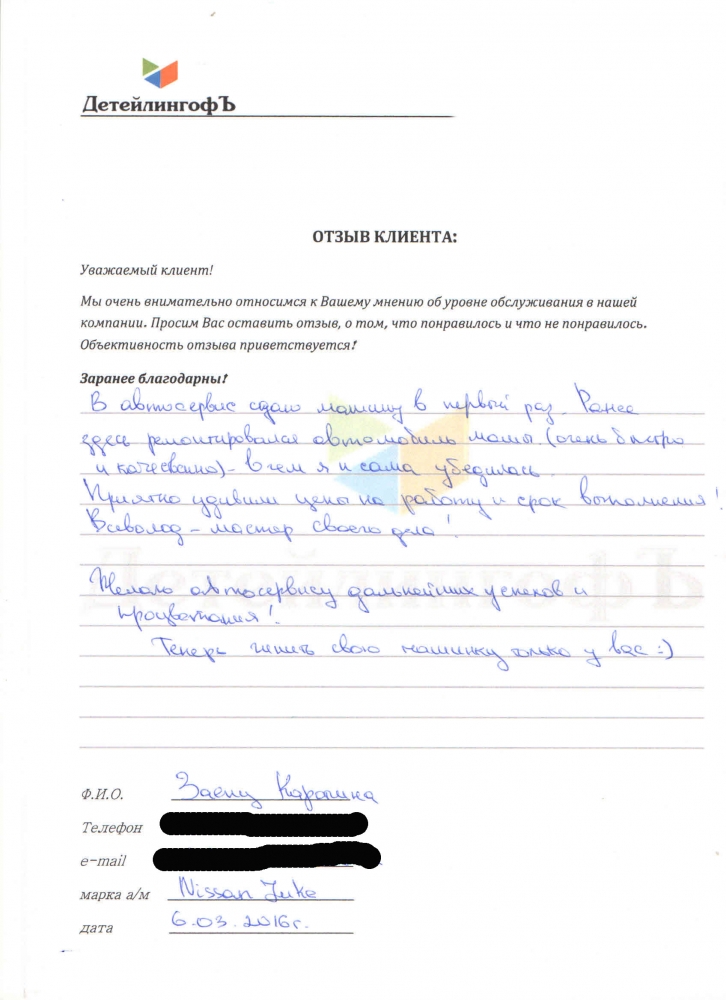 ДетейлингофЪ
ОТЗЫВ КЛИЕНТА:
Уважаемый клиент!
Мы очень внимательно относимся к Вашему мнению об уровне обслуживания в нашей
компании. Просим Вас оставить отзыв, о том, что понравилось и что не понравилось.
Объективность отзыва приветствуется!
Заранее благодарны!
В автосервис сдаю машину в первый раз. Ранее
здесь ремонтировался автомобиль мамы (очень быстро
и качесвано) - в чем я и сама убедилась.
Приятно удивили цены на работу и срок выполнения!
Всеволод - мастер своего дела!
Желаю автосервису дальнейших успехов и
процветания!
Теперь чинить свою машинку только у вас :)
Ф.И.О. Заяц
Телефон
e-mail
марка а/м Nissan Juke
дата 6.03.2016г.